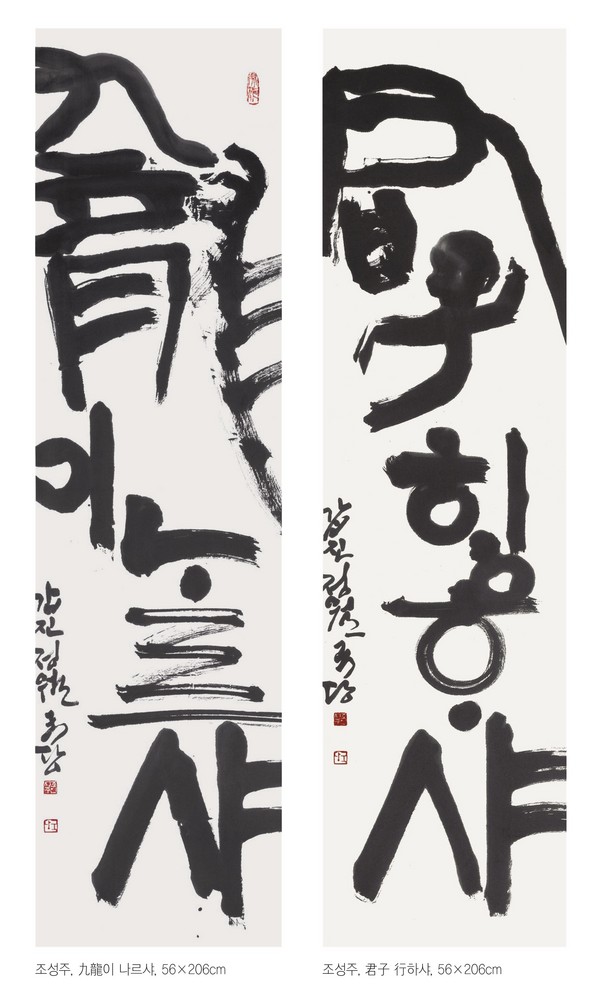 九龍이ᄂᆞ르샤
갑진 정월
君子ᄒᆡᆼᄒᆞ샤
갑진 정월
조성주, 九龍이 나르샤, 56×206cm
조성주, 君子 行하샤, 56×206cm